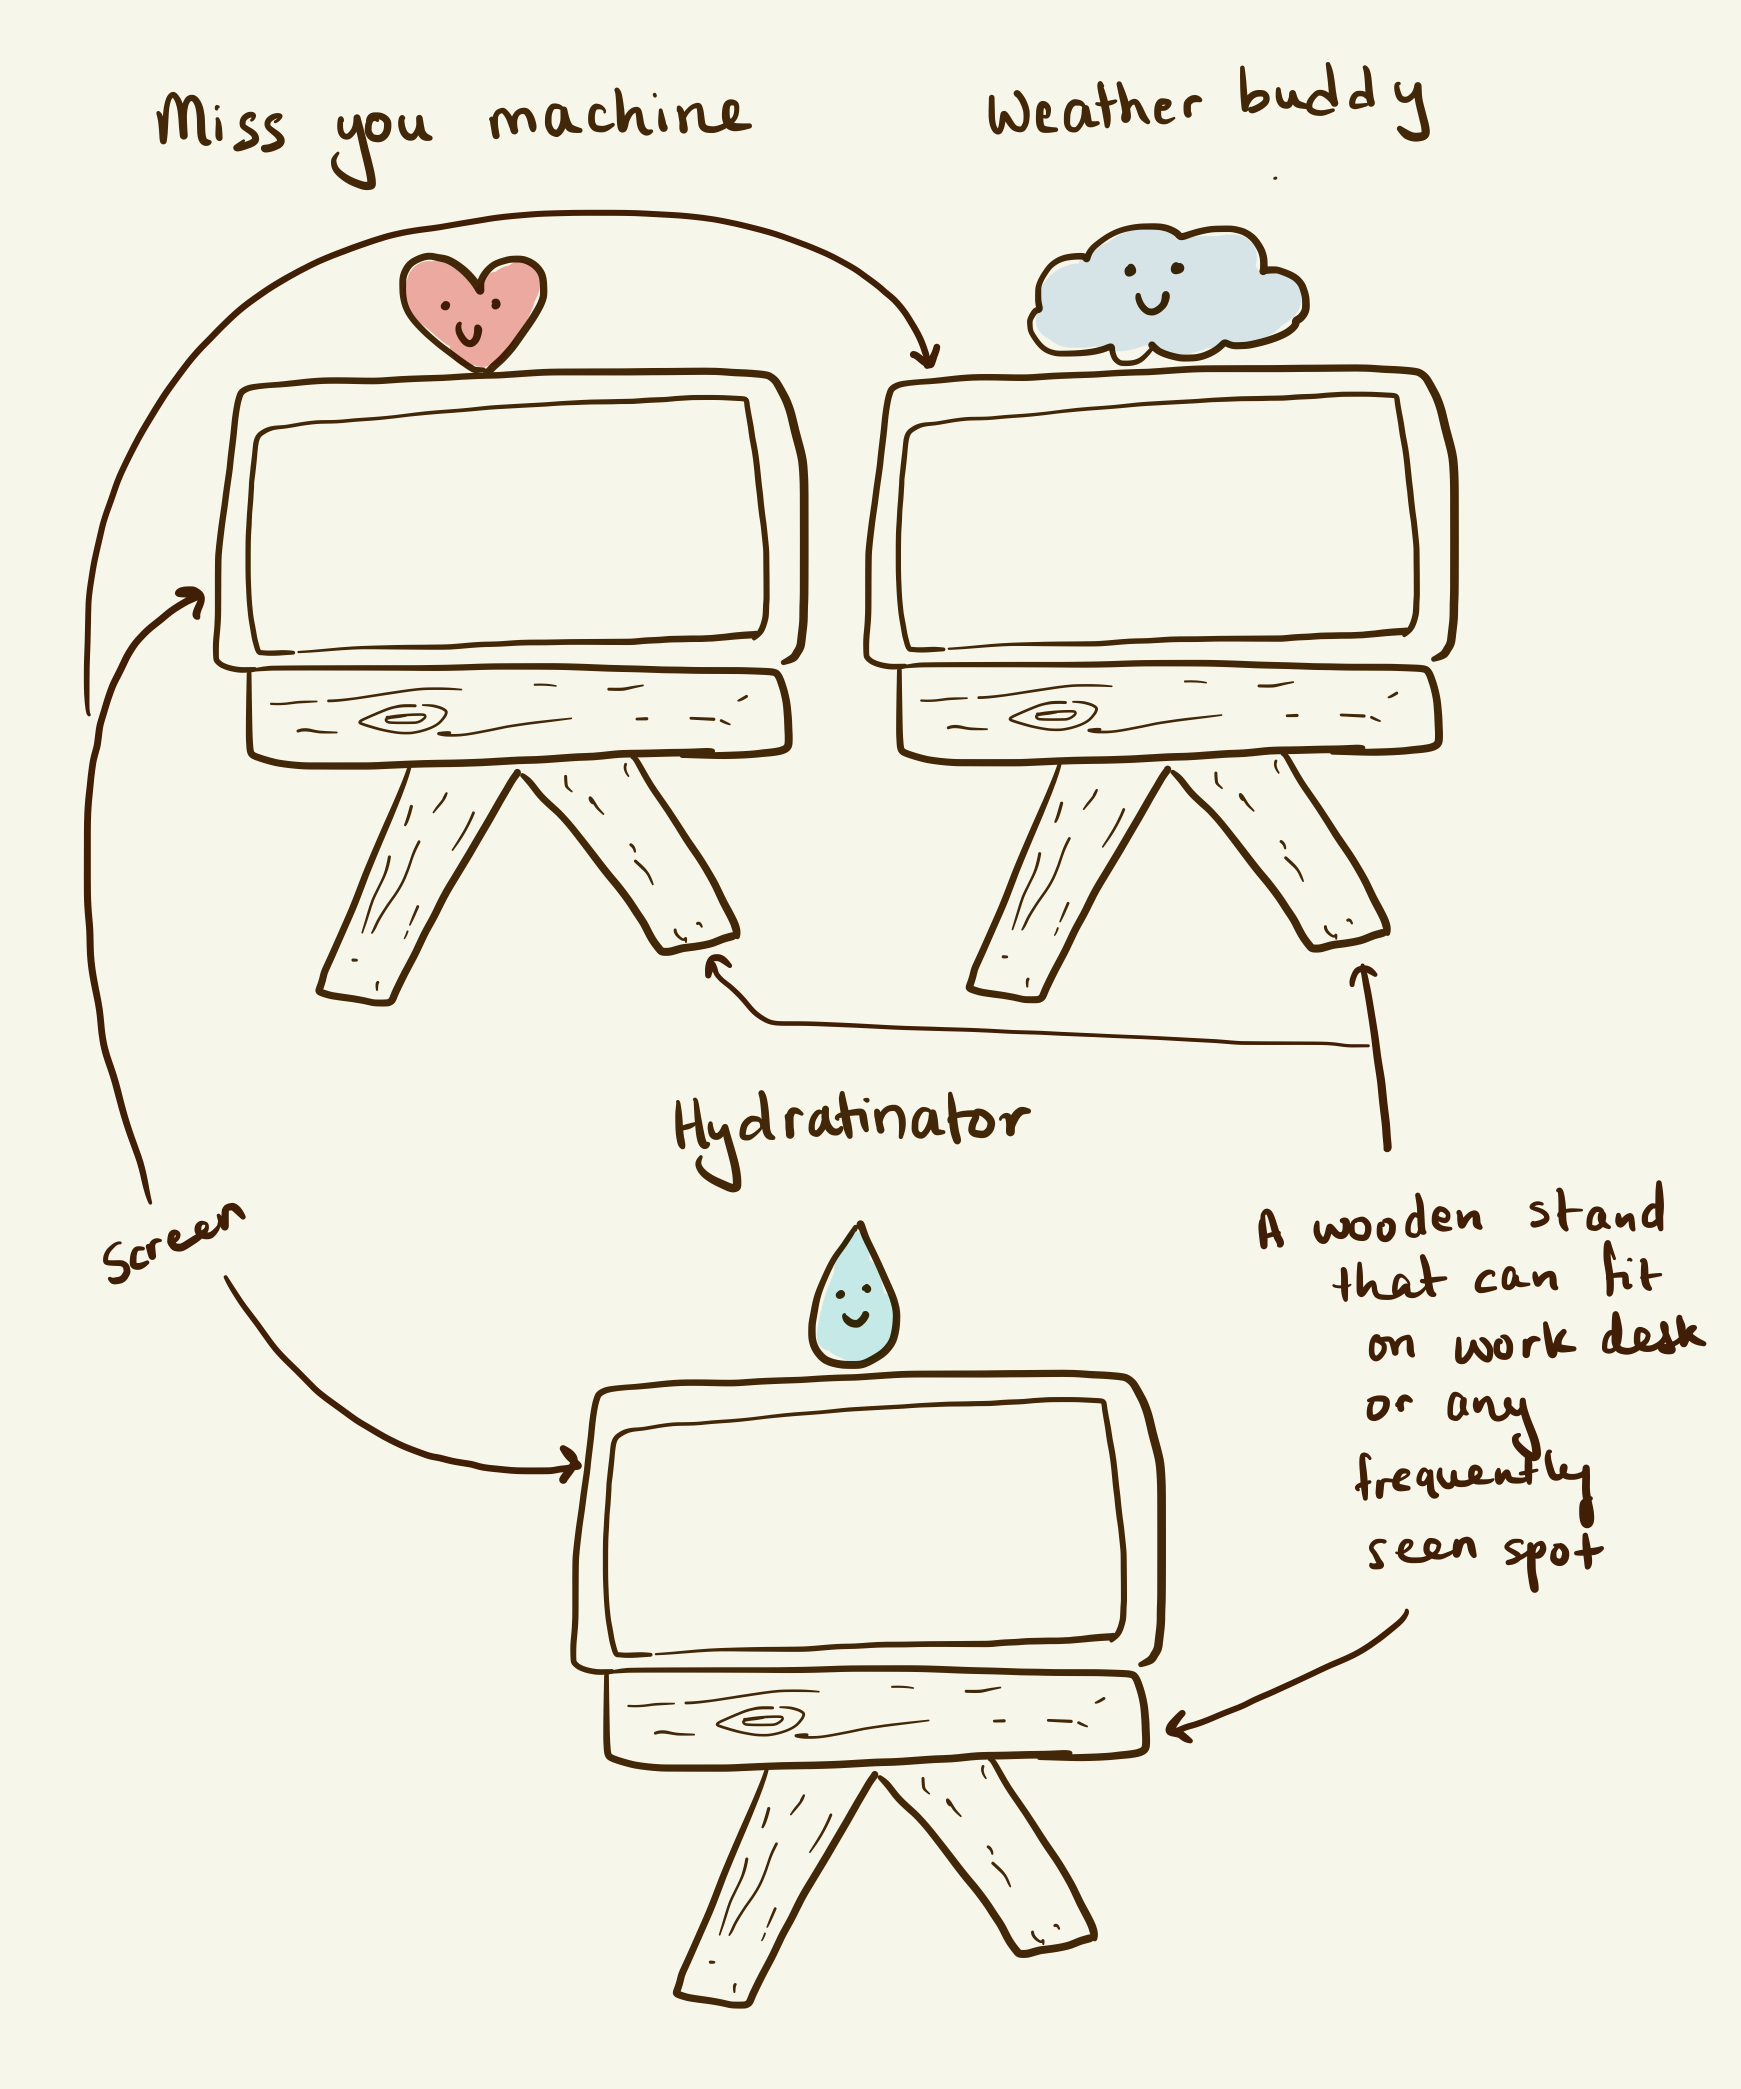 Miss you machine
Weather buddy
Hydratinator
Screen
A wooden stand
that can fit
on work desk
or any
frequently
seen spot